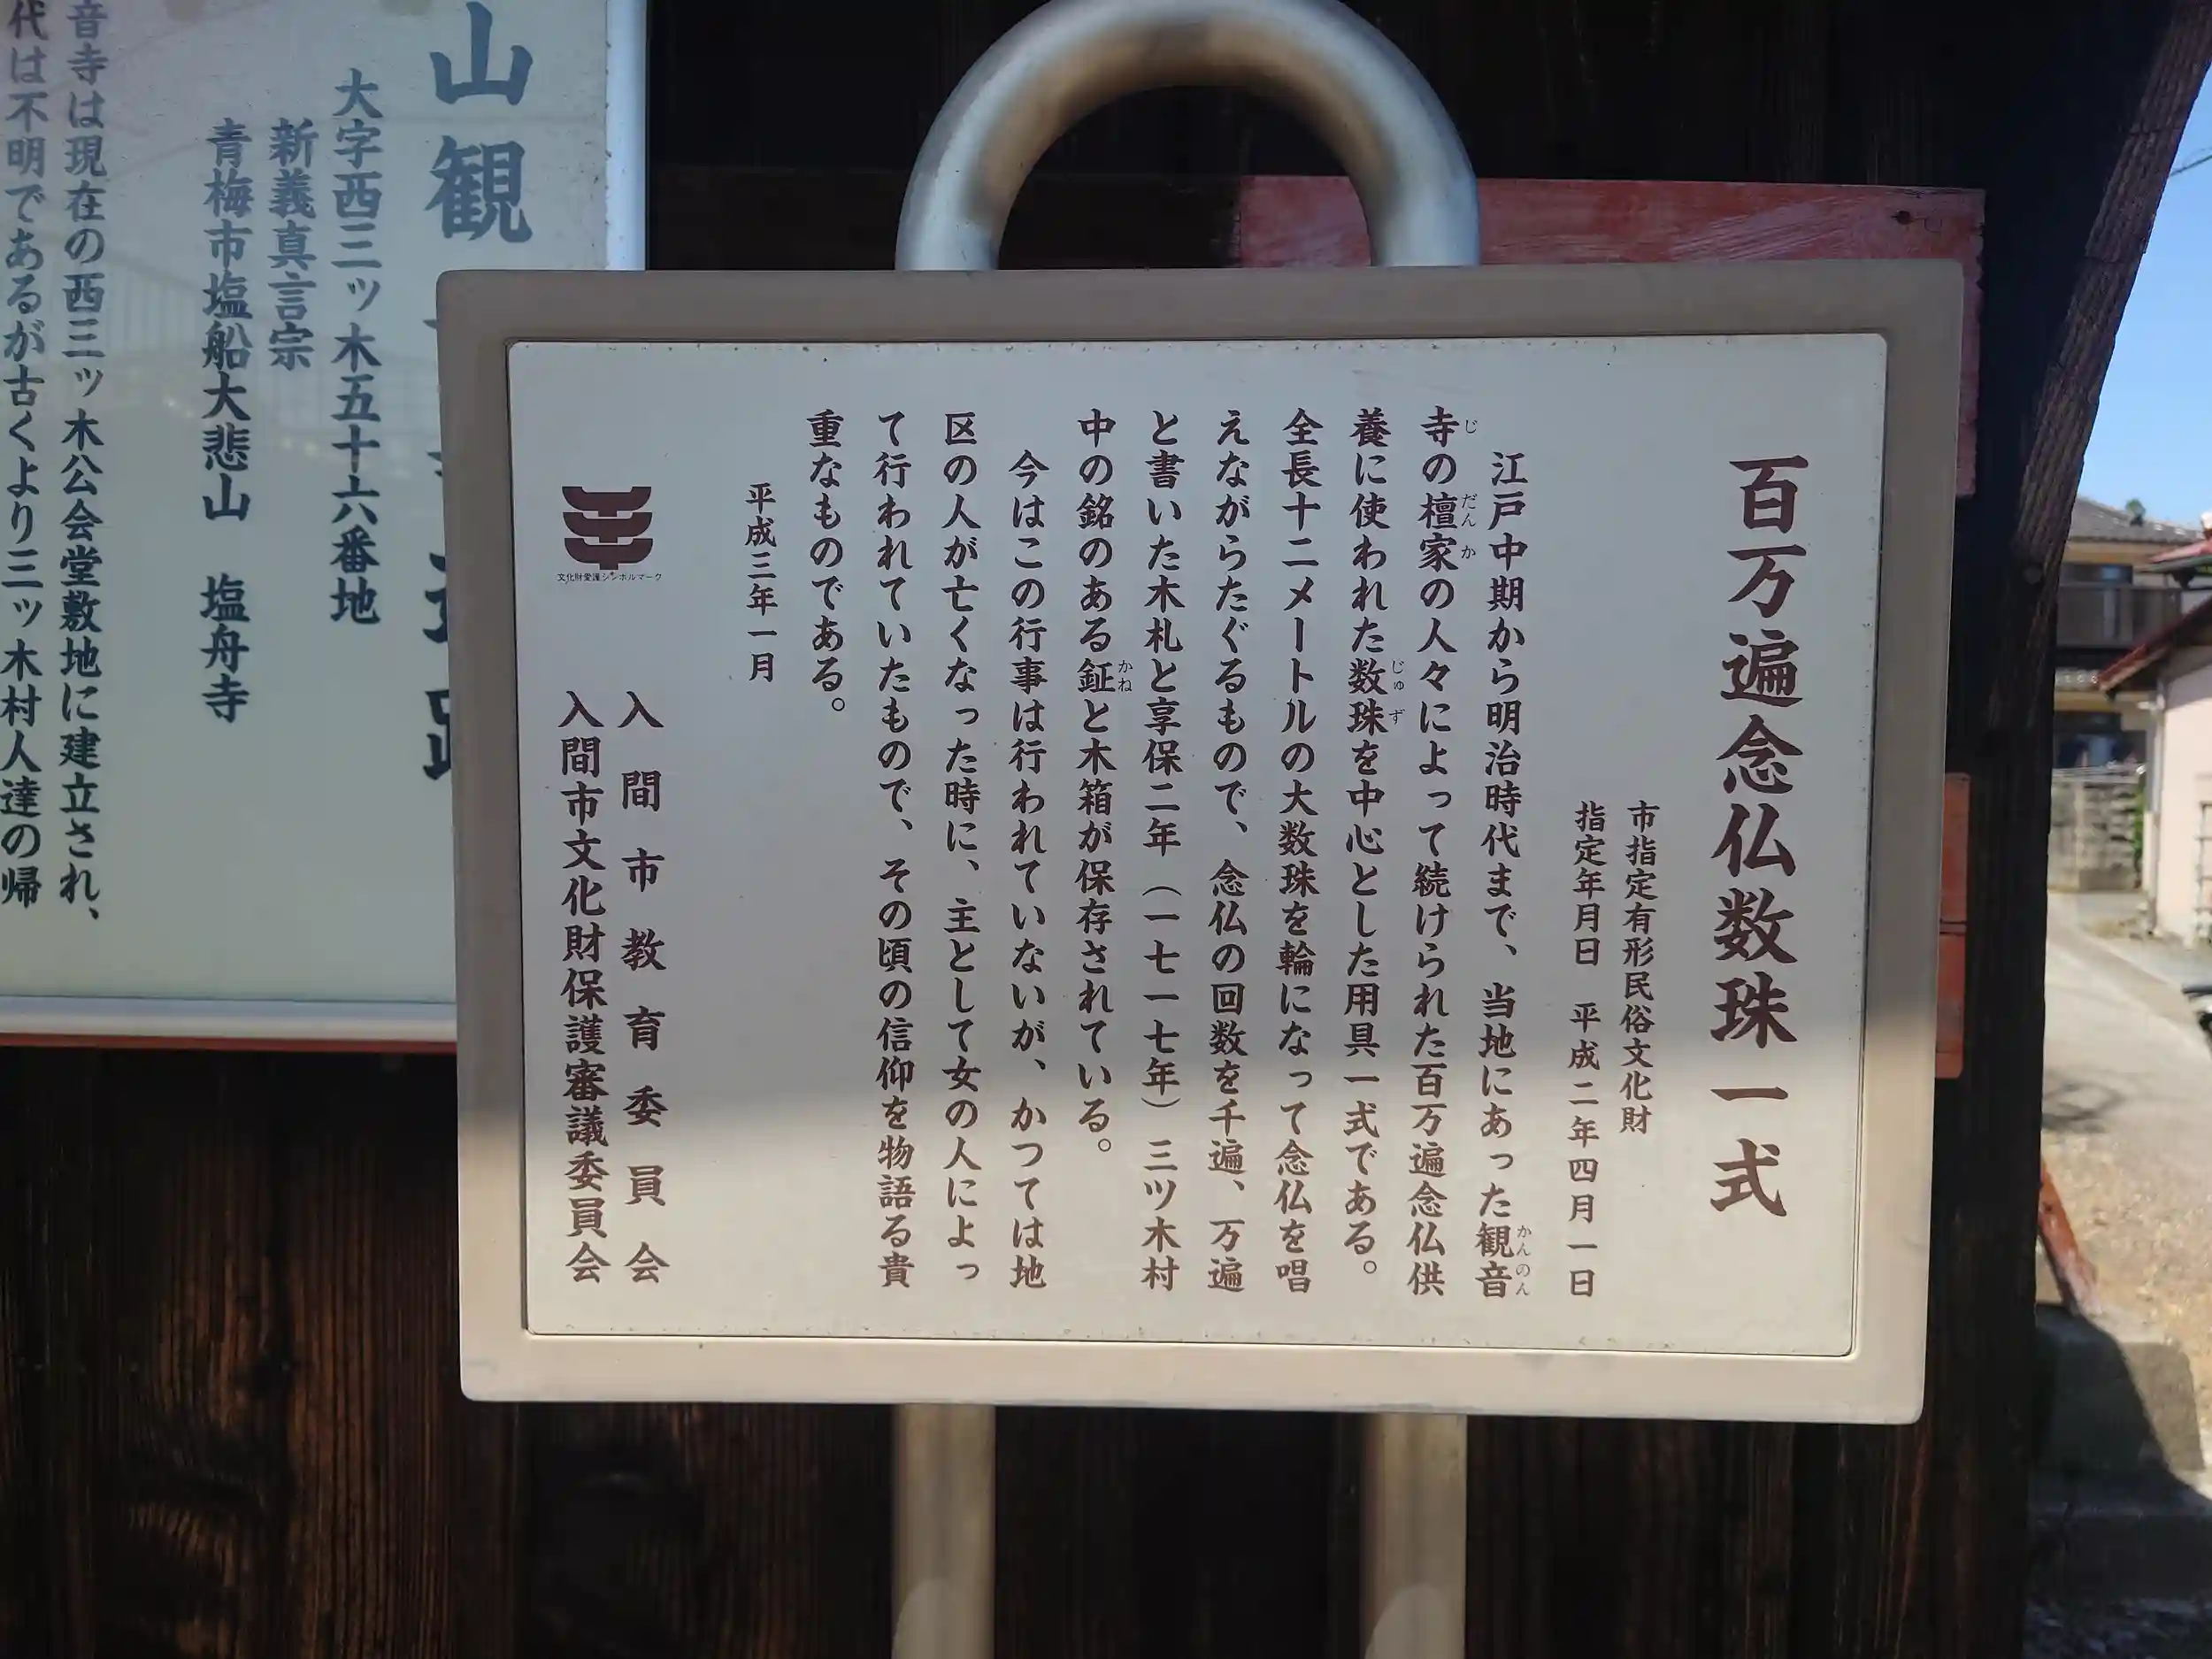 百万遍念仏数珠一式
市指定有形民俗文化財
指定年月日　平成二年四月一日
江戸中期から明治時代まで、当地にあった観音
寺の檀家の人々によって続けられた百万遍念仏供
養に使われた数珠を中心とした用具一式である。
全長十二メートルの大数珠を輪になって念仏を唱
えながらたぐるもので、念仏の回数を千遍、万遍
と書いた木札と享保二年（一七一七年）三ツ木村
中の銘のある鉦と木箱が保存されている。
今はこの行事は行われていないが、かつては地
区の人が亡くなった時に、主として女の人によっ
て行われていたもので、その頃の信仰を物語る貴
重なものである。
平成三年一月
入間市教育委員会
入間市文化財保護審議委員会
文化財愛護シンボルマーク
かんのん
じ
だんか
じゅず
かね
山観
大字西三ッ木五十六番地
新義真言宗
青梅市塩船大悲山　塩舟寺
音寺は現在の西三ッ木公会堂敷地に建立され、
代は不明であるが古くより三ッ木村人達の帰